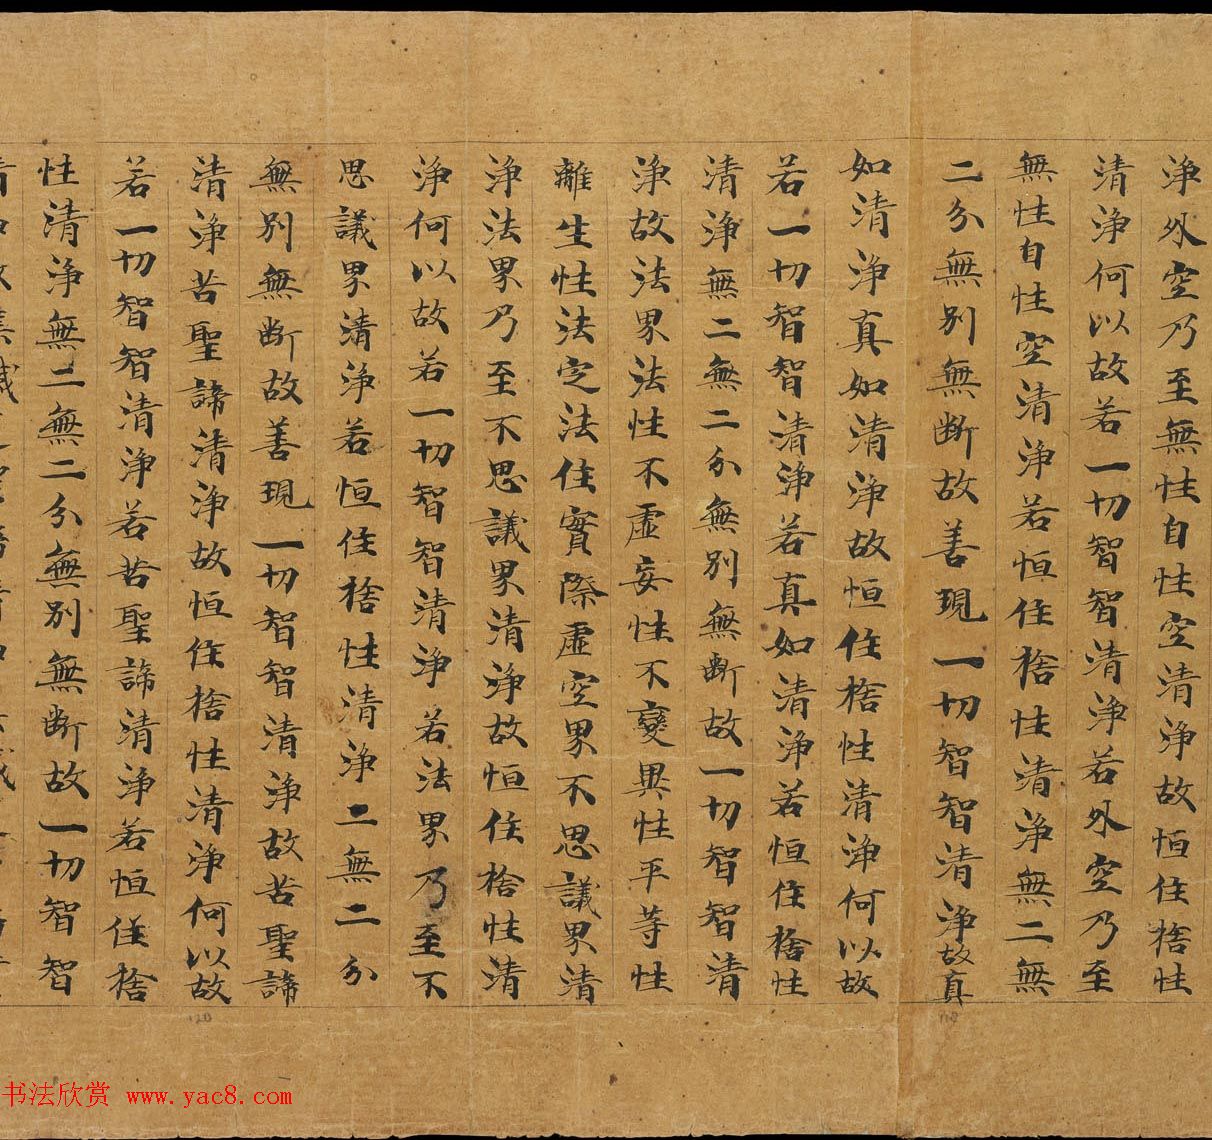 淨外空乃至無性自性空清淨故恒住捨性
清淨何以故若一切智智清淨若外空乃至
無性自性空清淨若恒住捨性清淨無二無
二分無別無斷故善現一切智智清淨故真
如清淨真如清淨故恒住捨性清淨何以故
若一切智智清淨若真如清淨若恒住捨性
清淨無二無二分無別無斷故一切智智清
淨故法界法性不虛妄性不變異性平等性
離生性法定法住實際虛空界不思議界清
淨法界乃至不思議界清淨故恒住捨性清
淨何以故若一切智智清淨若法界乃至不
思議界清淨若恒住捨性清淨二無二分
無別無斷故善現一切智智清淨故苦聖諦
清淨苦聖諦清淨故恒住捨性清淨何以故
若一切智智清淨若苦聖諦清淨若恒住捨
性清淨無二無二分無別無斷故一切智智
书法欣赏 www.yac8.com